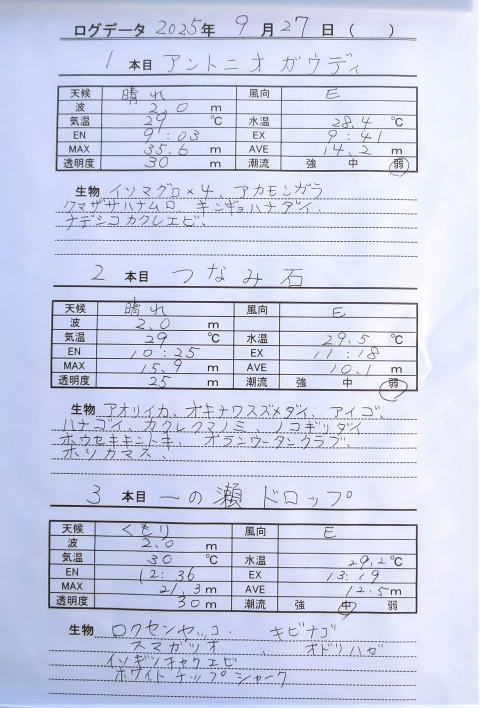 ログデータ 2025年 9月27日（　）
1 本目 アントニオ ガウディ
天候 晴れ 風向 E
波 2.0 m
気温 29 ℃ 水温 28.4 ℃
EN 9:03 EX 9:41
MAX 35.6 m AVE 14.2 m
透明度 30 m 潮流 強 中 弱
生物 イソマグロ×4、アカモンガラ
クマザサハナムロ キンギョハナダイ、
ナデシコカクレエビ、
2 本目 つなみ石
天候 晴れ 風向 E
波 2.0 m
気温 29 ℃ 水温 29.5 ℃
EN 10:25 EX 11:18
MAX 15.9 m AVE 10.1 m
透明度 25 m 潮流 強 中 弱
生物 アオリイカ、オキナワスズメダイ、アイゴ、
ハナゴイ、カクレクマノミ、ノコギリダイ
ホウセキキントキ、オランウータンクラブ、
ホソカマス、
3 本目 一の瀬 ドロップ
天候 くもり 風向 E
波 2.0 m
気温 30 ℃ 水温 29.2 ℃
EN 12:36 EX 13:19
MAX 21.3 m AVE 12.5 m
透明度 30 m 潮流 強 中 弱
生物 ロクセンヤッコ、 キビナゴ
スマガツオ 、 オドリハゼ
イソギンチャクエビ
ホワイトチップシャーク